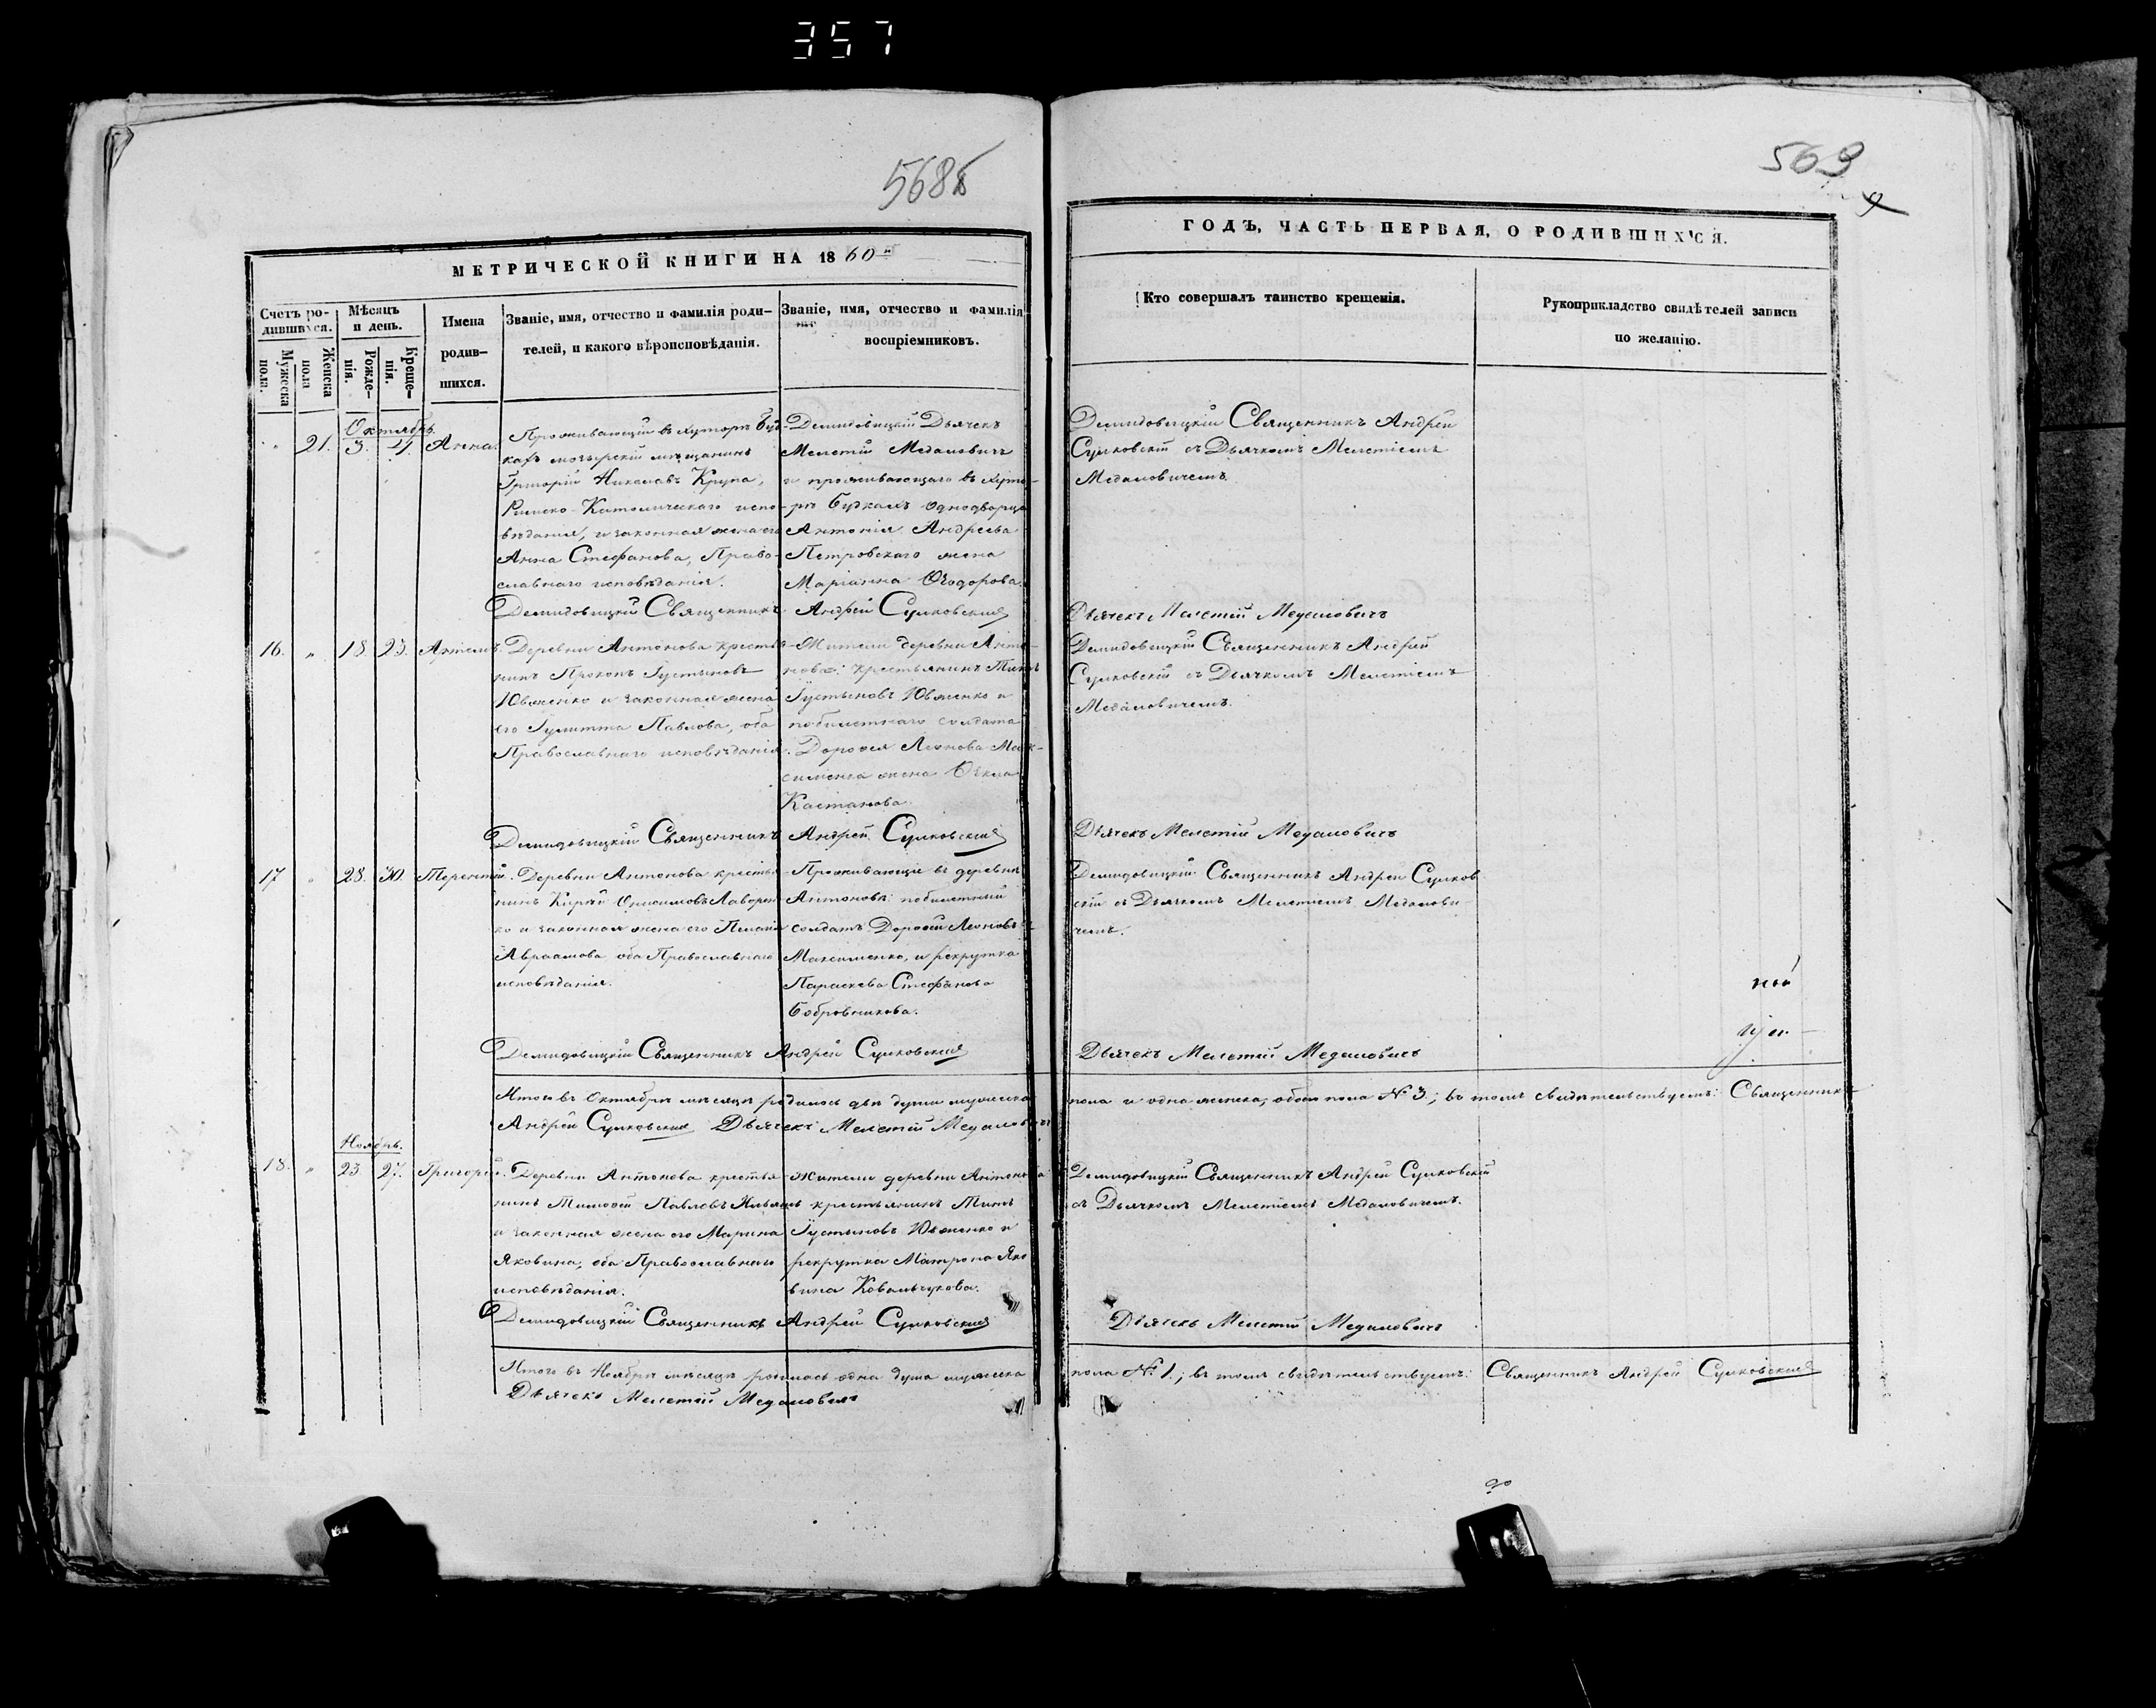 357
568б
569
МЕТРИЧЕСКОЙ КНИГИ НА 1860й
ГОДЪ, ЧАСТЬ ПЕРВАЯ, О РОДИВШИХСЯ.
Счетъ ро-
дившихся.
Мужеска
пола.
Женска
пола
Мѣсяцъ
и день.
Рожде-
нія.
Креще-
нія.
Имена
родив-
шихся.
Званіе, имя, отчество и фамилія роди-
телей, и какого вѣроисповѣданія.
Званіе, имя, отчество и фамилія
воспріемниковъ.
Кто совершалъ таинство крещенія.
Рукоприкладство свидѣтелей записи
по желанію.
Октябрь.
" 21. 3. 4. Анна.
Проживающій въ хуторѣ Буд-
кахъ мозырскій мѣщанинъ
Григорій Николаевъ Крупа,
Римско-Католическаго испо-
вѣданія, и законная жена его
Анна Стефанова, Право-
славнаго исповѣданія.
Демидовицкій Дьячекъ
Мелетій Медаловичъ
и проживающаго въ хуто-
рѣ Будкахъ однодворца
Антонія Андреева
Петровскаго жена
Маріанна Ѳеодорова.
Демидовицкій Священникъ Андрей
Сулковскій съ Дьячкомъ Мелетіемъ
Медаловичемъ.
Демидовицкій Священникъ Андрей Сулковскій
Дьячекъ Мелетій Медаловичъ
16. " 18. 23.
Деревни Антонова крестья-
нинъ Прокопъ Густыновъ
Ювженко и законная жена
его Гулитта Павлова, оба
Православнаго исповѣданія.
Жители деревни Анто-
нова: крестьянинъ Титъ
Густыновъ Ювженко и
побилетнаго солдата
Дороѳея Леонова Мак-
сименка жена Ѳекла
Кастанова.
Демидовицкій Священникъ Андрей
Сулковскій съ Дьячкомъ Мелетіемъ
Медаловичемъ.
Демидовицкій Священникъ Андрей Сулковскій
Дьячекъ Мелетій Медаловичъ
17 " 28. 30. Терентій.
Деревни Антонова крестья-
нинъ Онисимовъ Лаворен-
ко и законная жена его Пелагія
Авраамова, оба Православнаго
исповѣданія.
Проживающіе въ деревни
Антоновѣ: побилетный
солдатъ Дороѳей Леоновъ
Максименко, и рекрутка
Параскева Стефанова
Бобровникова.
Демидовицкій Священникъ Андрей Сулков
скій съ Дьячкомъ Мелетіемъ Медалови-
чемъ.
Демидовицкій Священникъ Андрей Сулковскій
Дьячекъ Мелетій Медаловичъ
Итого въ Октябрѣ мѣсяцѣ родилось двѣ души мужеска
пола и одна женска, обоего пола № 3; въ томъ свидѣтельствуемъ: Священникъ
Андрей Сулковскій Дьячекъ Мелетій Медаловичъ
Ноябрь.
18. " 23 27. Григорій.
Деревни Антонова крестья-
нинъ Тимоѳей Павловъ
и законная жена его Марина
Яковина, оба Православнаго
исповѣданія.
Жители деревни Антонова:
крестьянинъ Титъ
Густыновъ Ювженко и
рекрутка Матрона Яко
вина Ковальчукова.
Демидовицкій Священникъ Андрей Сулковскій
съ Дьячкомъ Мелетіемъ Медаловичемъ.
Демидовицкій Священникъ Андрей Сулковскій
Дьячекъ Мелетій Медаловичъ
Итого въ Ноябрѣ мѣсяцѣ родилась одна душа мужеска
пола № 1; въ томъ свидѣтельствуемъ: Священникъ Андрей Сулковскій
Дьячекъ Мелетій Медаловичъ